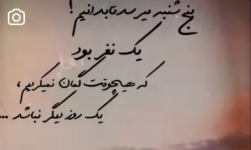 پنج شنبه میرسد تا بدانیم !
یک نفر بود
که هیچوقت گمان نمیکردیم ،
یک روز دیگر نباشد ...